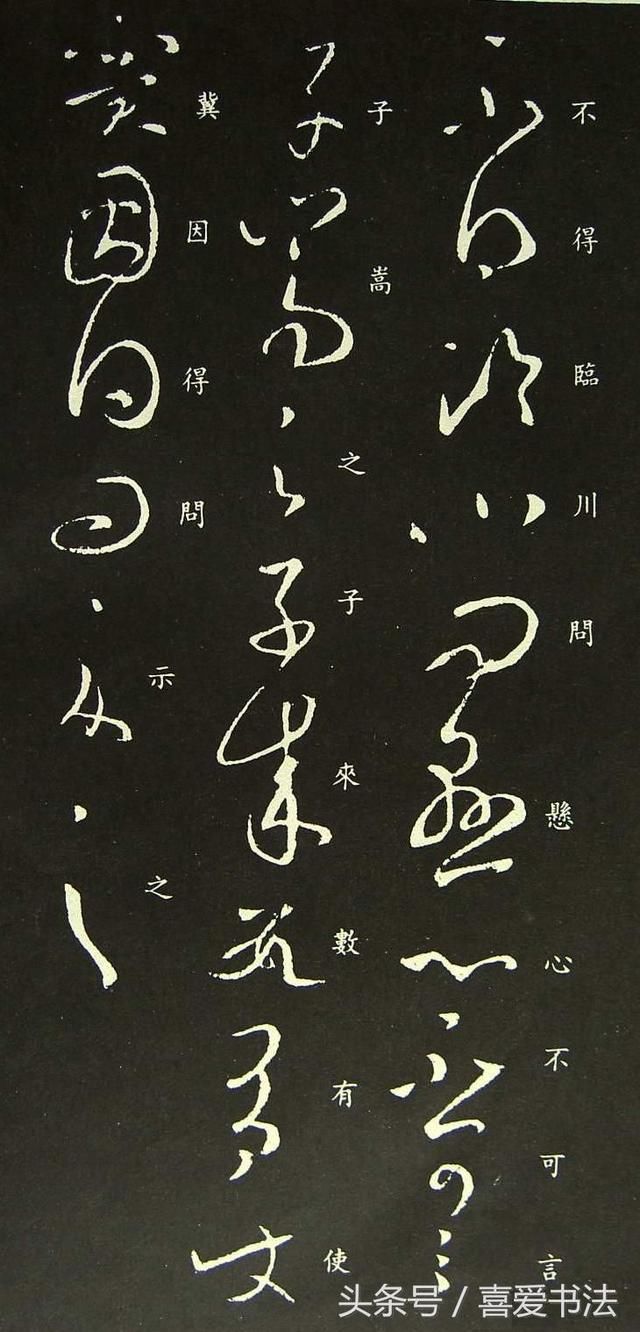 不得臨川問懸心不可言
子嵩之子來數有使
冀因得問示之
头条号 / 喜爱书法